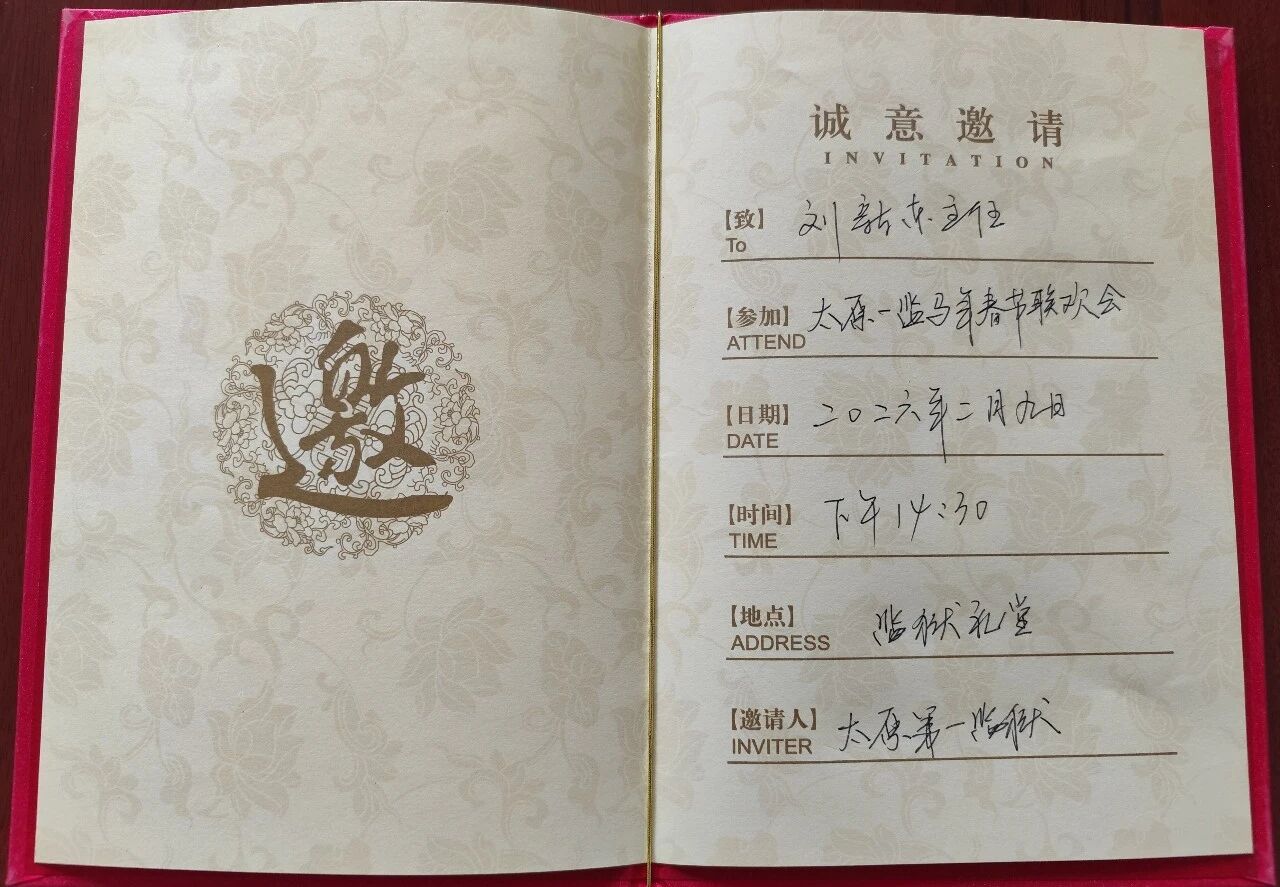 邀
诚意邀请
INVITATION
【致】 刘新东主任
To
【参加】 太原一监马年春节联欢会
ATTEND
【日期】 二〇二六年二月九日
DATE
【时间】 下午14:30
TIME
【地点】 监狱礼堂
ADDRESS
【邀请人】 太原第一监狱
INVITER